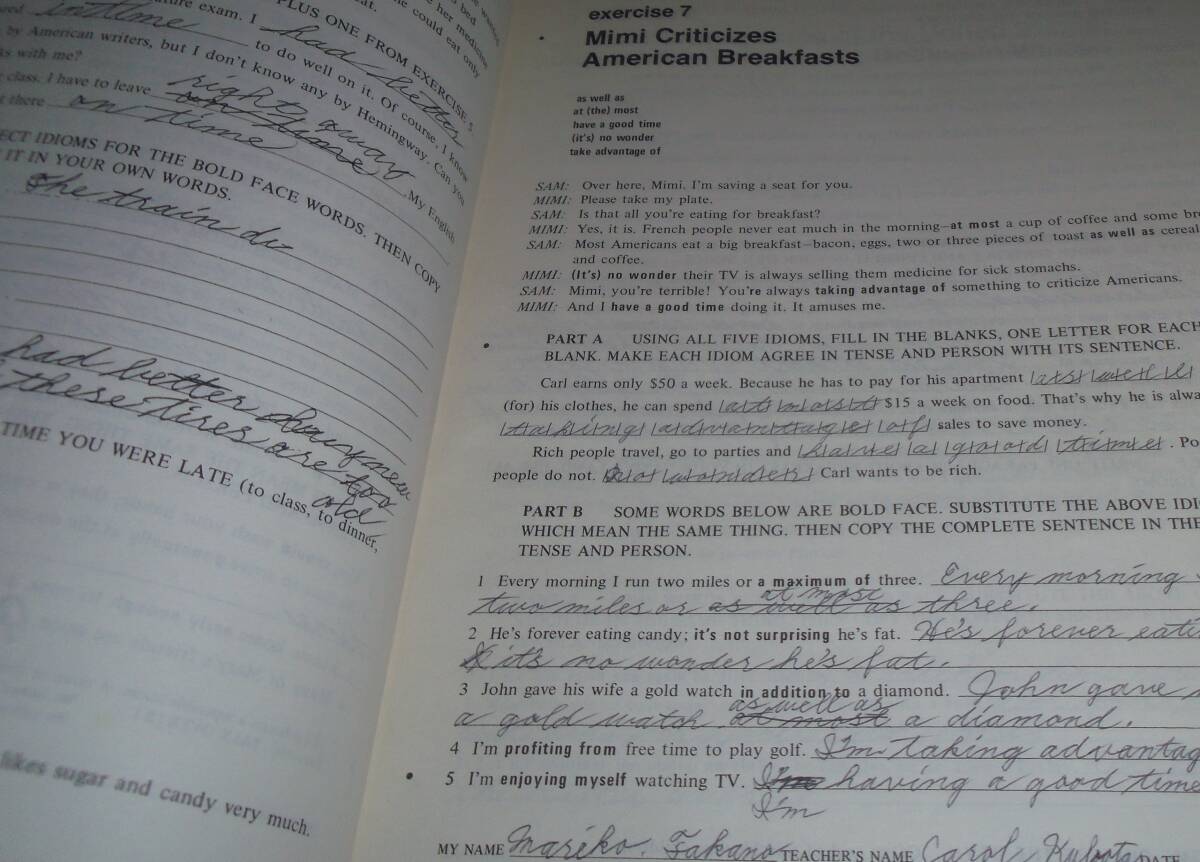 in time
ture exam. I had better
to do well on it. Of course, I know
by American writers, but I don't know any by Hemingway. Can you
ks with me?
class. I have to leave right away on time. My English
t there on time
PLUS ONE FROM EXERCISE 5
her medicine
he could eat only
ECT IDIOMS FOR THE BOLD FACE WORDS. THEN COPY
IT IN YOUR OWN WORDS.
The train di
had better buy new
these tires are too
old
TIME YOU WERE LATE (to class, to dinner,
likes sugar and candy very much.
exercise 7
Mimi Criticizes
American Breakfasts
as well as
at (the) most
have a good time
(it's) no wonder
take advantage of
SAM: Over here, Mimi. I'm saving a seat for you.
MIMI: Please take my plate.
SAM: Is that all you're eating for breakfast?
MIMI: Yes, it is. French people never eat much in the morning—at most a cup of coffee and some bre
SAM: Most Americans eat a big breakfast—bacon, eggs, two or three pieces of toast as well as cereal
and coffee.
MIMI: (It's) no wonder their TV is always selling them medicine for sick stomachs.
SAM: Mimi, you're terrible! You're always taking advantage of something to criticize Americans.
MIMI: And I have a good time doing it. It amuses me.
PART A USING ALL FIVE IDIOMS, FILL IN THE BLANKS, ONE LETTER FOR EACH
BLANK. MAKE EACH IDIOM AGREE IN TENSE AND PERSON WITH ITS SENTENCE.
Carl earns only $50 a week. Because he has to pay for his apartment as well
(for) his clothes, he can spend at most $15 a week on food. That's why he is alwa
taking advantage of sales to save money.
Rich people travel, go to parties and have a good time. Po
people do not. No wonder Carl wants to be rich.
PART B SOME WORDS BELOW ARE BOLD FACE. SUBSTITUTE THE ABOVE IDIO
WHICH MEAN THE SAME THING. THEN COPY THE COMPLETE SENTENCE IN THE
TENSE AND PERSON.
1 Every morning I run two miles or a maximum of three. Every morning
at most
two miles or as well as three.
2 He's forever eating candy; it's not surprising he's fat. He's forever eati
it's no wonder he's fat.
3 John gave his wife a gold watch in addition to a diamond. John gave
as well as
a gold watch at most a diamond.
4 I'm profiting from free time to play golf. I'm taking advantag
5 I'm enjoying myself watching TV. I'm having a good time
I'm
MY NAME Mariko Takano TEACHER'S NAME Carol Kubota DATE